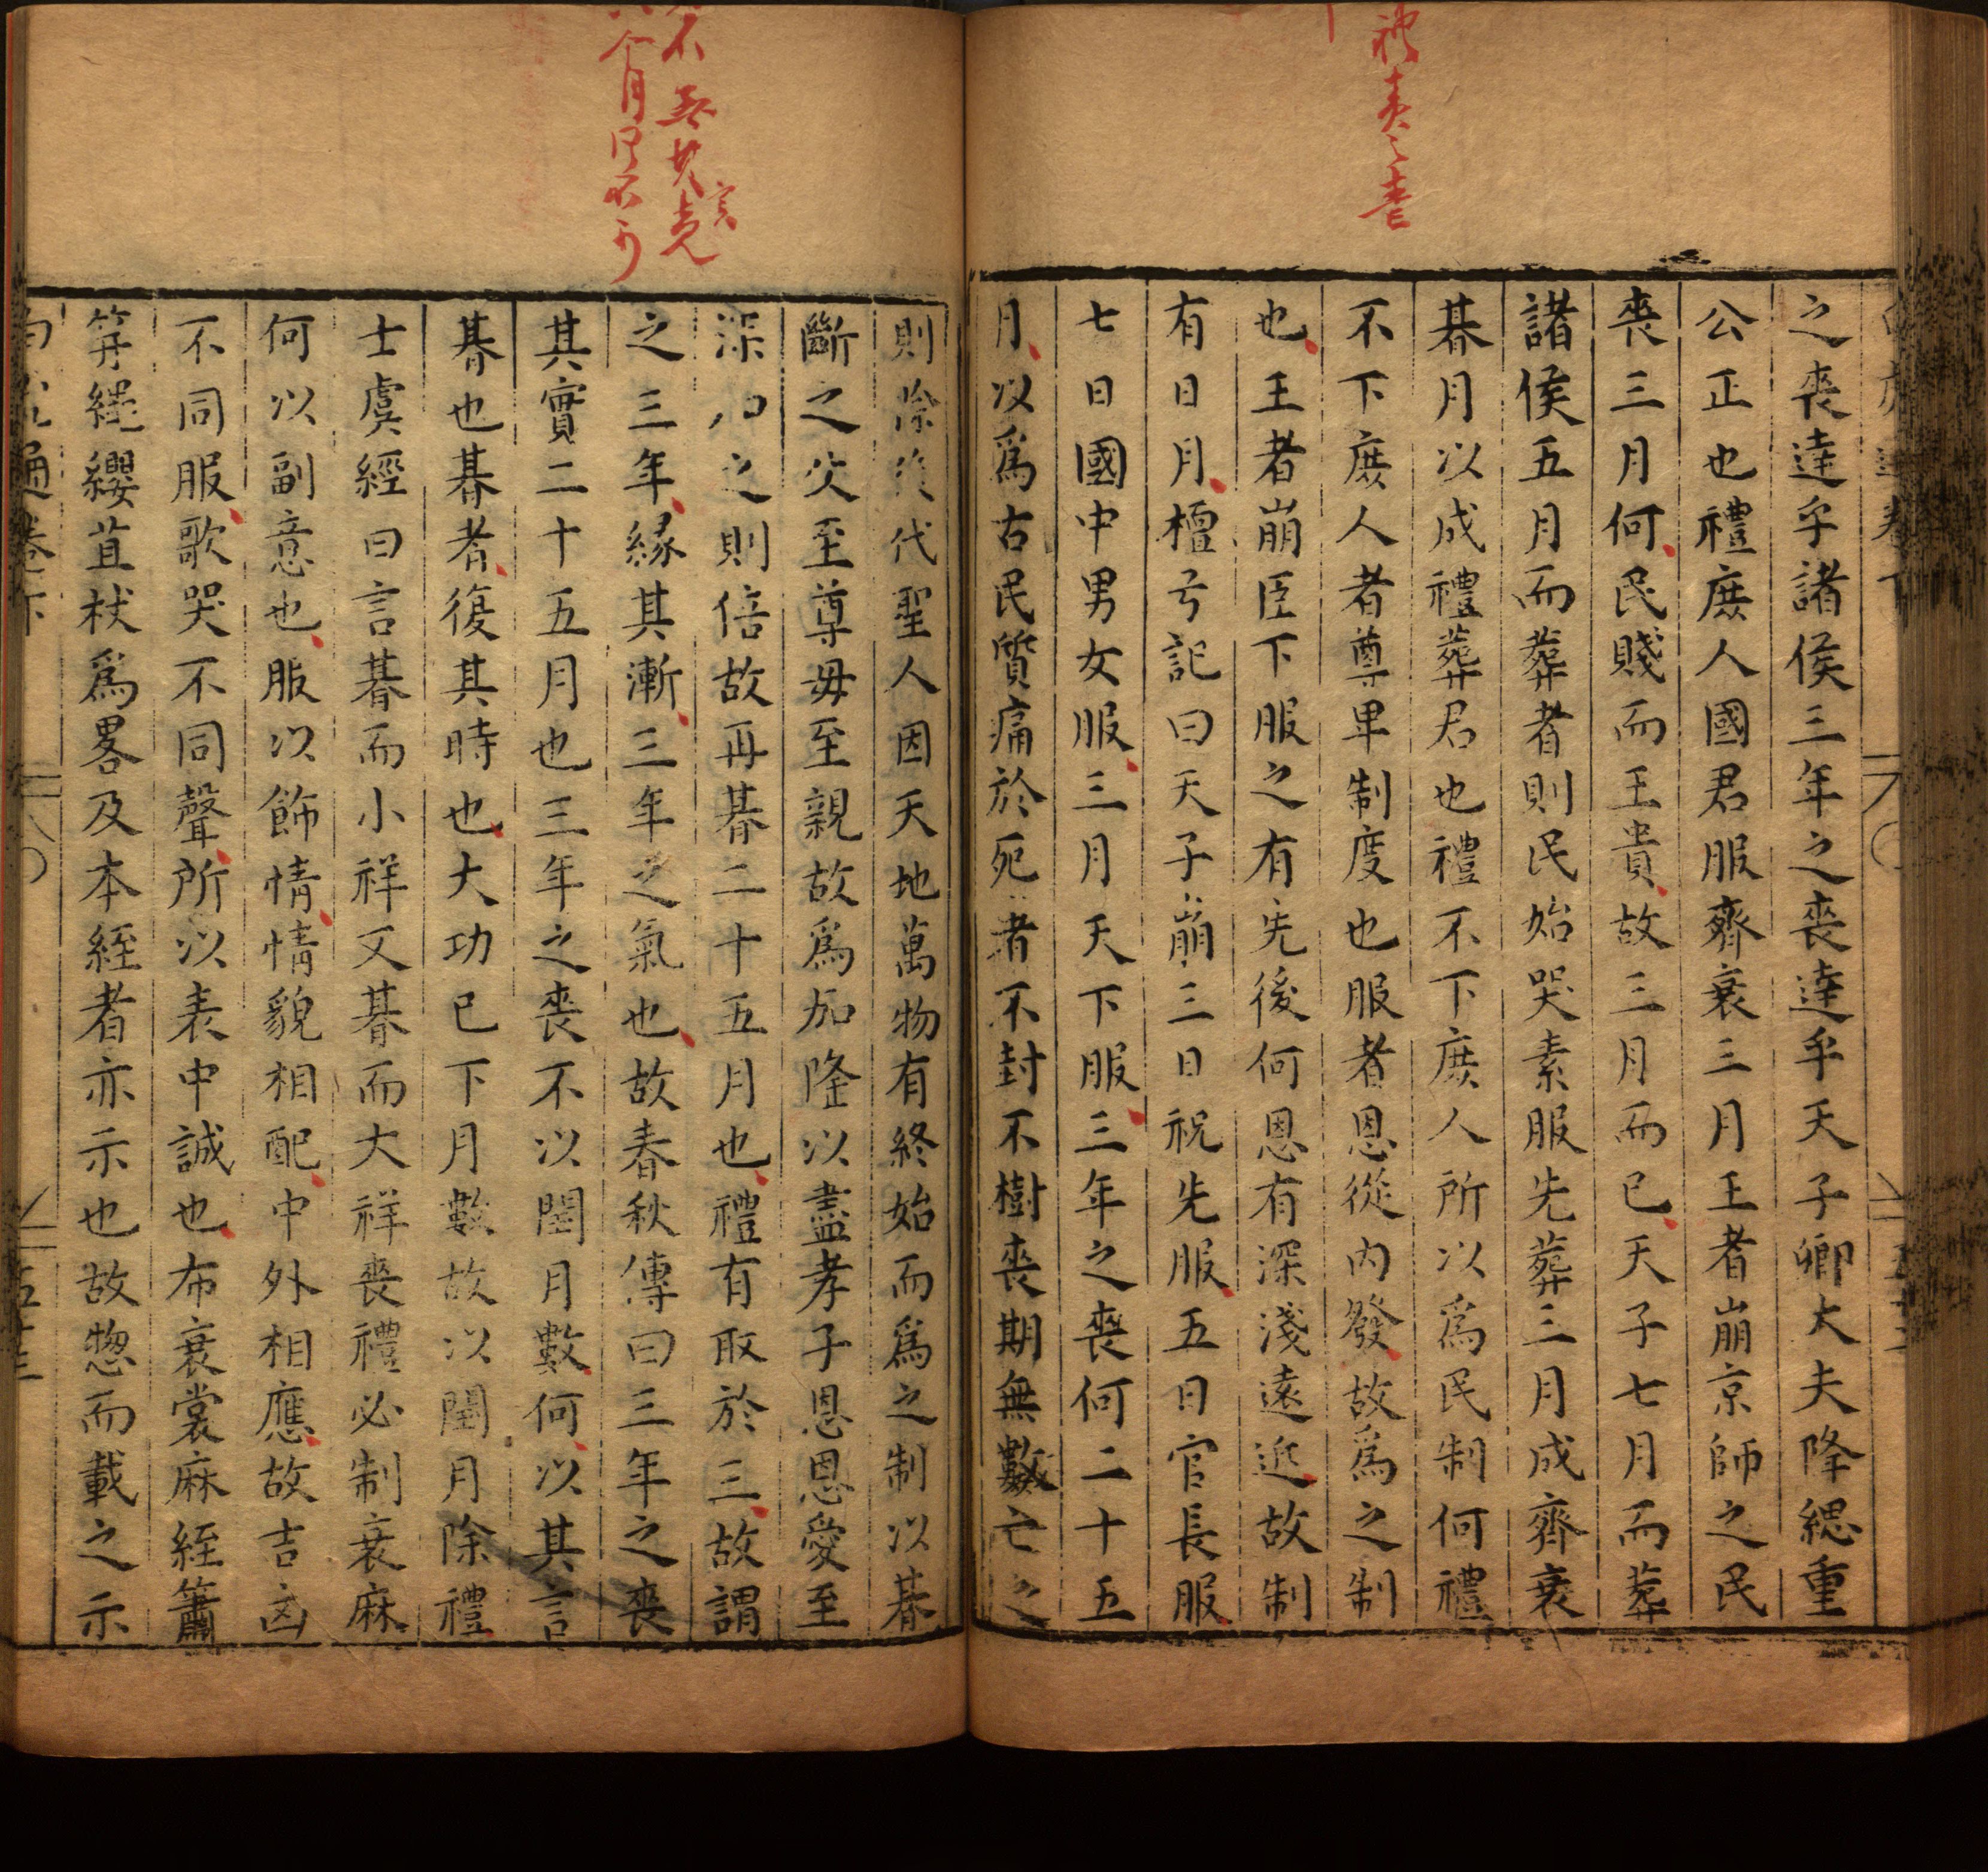 之喪達乎諸侯三年之喪達乎天子卿大夫降緦重
公正也禮庶人國君服齊衰三月王者崩京師之民
喪三月何民賤而王貴故三月而已天子七月而葬
諸侯五月而葬者則民始哭素服先葬三月成齊衰
朞月以成禮葬君也禮不下庶人所以爲民制何禮
不下庶人者尊卑制度也服者恩從內發故爲之制
也王者崩臣下服之有先後何恩有深淺遠近故制
有日月檀弓記曰天子崩三日祝先服五日官長服
七日國中男女服三月天下服三年之喪何二十五
月以爲古民質痛於死者不封不樹喪期無數亡之
則除後代聖人因天地萬物有終始而爲之制以朞
斷之父至尊母至親故爲加隆以盡孝子恩恩愛至
深加之則倍故再朞二十五月也禮有取於三故謂
之三年緣其漸三年之氣也故春秋傳曰三年之喪
其實二十五月也三年之喪不以閏月數何以其言
朞也朞者復其時也大功已下月數故以閏月除禮
士虞經曰言朞而小祥又朞而大祥喪禮必制衰麻
何以副意也服以飾情情貌相配中外相應故吉凶
不同服歌哭不同聲所以表中誠也布衰裳麻絰簫
笄繩纓苴杖爲畧及本絰者亦示也故惣而載之示
通卷下